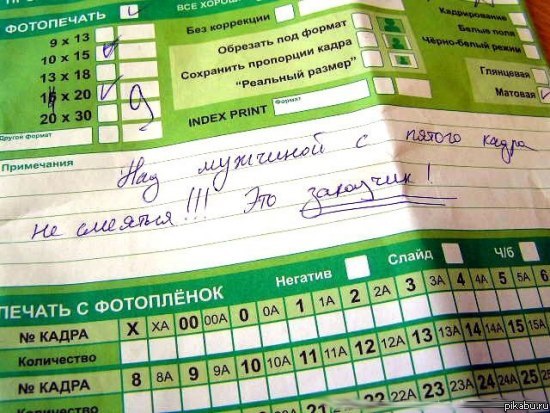 ФОТОПЕЧАТЬ
ВСЕ ХОРОШ
9 x 13
10 x 15
13 x 18
15 x 20
20 x 30
9
Другой формат
Без коррекции
Обрезать под формат
Сохранить пропорции кадра
"Реальный размер"
INDEX PRINT
Формат
Кадрирование
Белые поля
Чёрно-белый режим
Глянцевая
Матовая
Примечания
Над мужчиной с пятого кадра
не смеяться!!! Это заказчик!
ПЕЧАТЬ С ФОТОПЛЁНОК
Негатив
Слайд
Ч/б
№ КАДРА X XA 00 00A 0 0A 1 1A 2 2A 3 3A 4 4A 5 5A
Количество
№ КАДРА 8 8A 9 9A 10 10A 11 11A 12 12A 13 13A 14 14A 15 15A
Количество
22 22A 23 23A 24 24A 25 25A
pikabu.ru